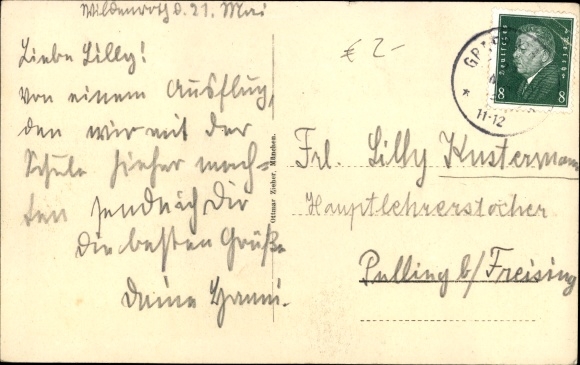 Wildenroth d. 21. Mai
Liebe Lilly!
Von einem Ausflug,
den wir mit der
Schule hieher mach-
ten sendnach Dir
die besten Grüße
Deine Hanni.
Ottmar Zieher, München.
€ 2-
Deutsches Reich
8 8
11-12
Frl. Lilly Kustermann
Hauptlehrerstochter
Pulling b/Freising